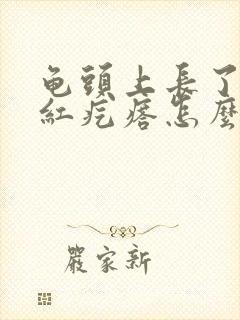 龟頭上長了
紅疙瘩怎麼
嚴家新